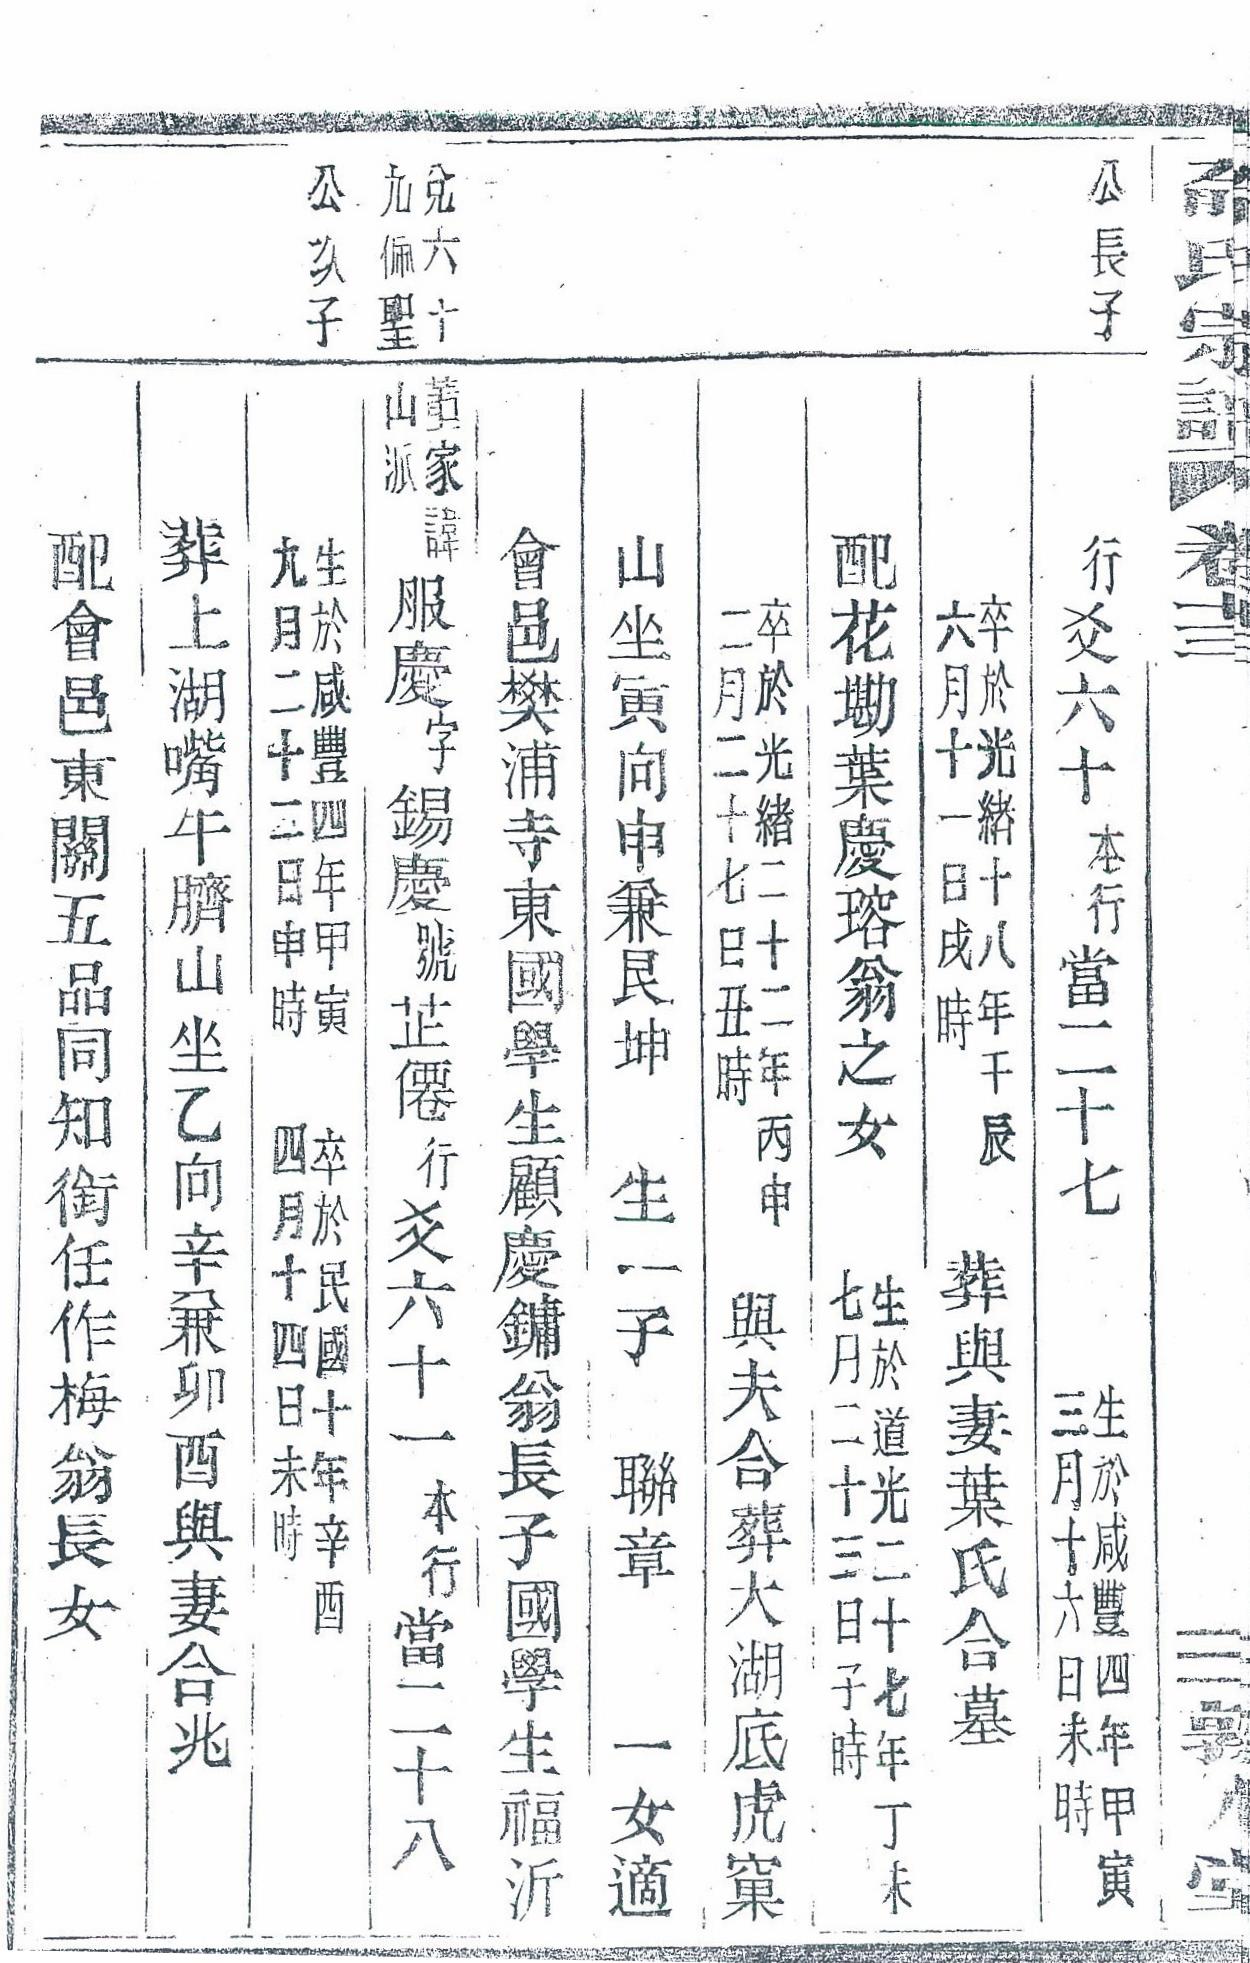 氏宗譜 卷三
公長子
行爻六十本行當二十七 生於咸豐四年甲寅
三月十六日未時
卒於光緒十八年壬辰
六月十一日戌時 葬與妻葉氏合墓
配花塢葉慶瑢翁之女 生於道光二十七年丁未
七月二十三日子時
卒於光緒二十二年丙申
二月二十七日丑時 與夫合葬大湖底虎窠
山坐寅向申兼艮坤 生一子 聯章 一女適
會邑樊浦寺東國學生顧慶鏞翁長子國學生福沂
兌六十
九佩聖
公次子
家
山派 諱服慶字錫慶號芷僊行爻六十一本行當二十八
生於咸豐四年甲寅
九月二十二日申時 卒於民國十年辛酉
四月十四日未時
葬上湖嘴牛臍山坐乙向辛兼卯酉與妻合兆
配會邑東關五品同知銜任作梅翁長女